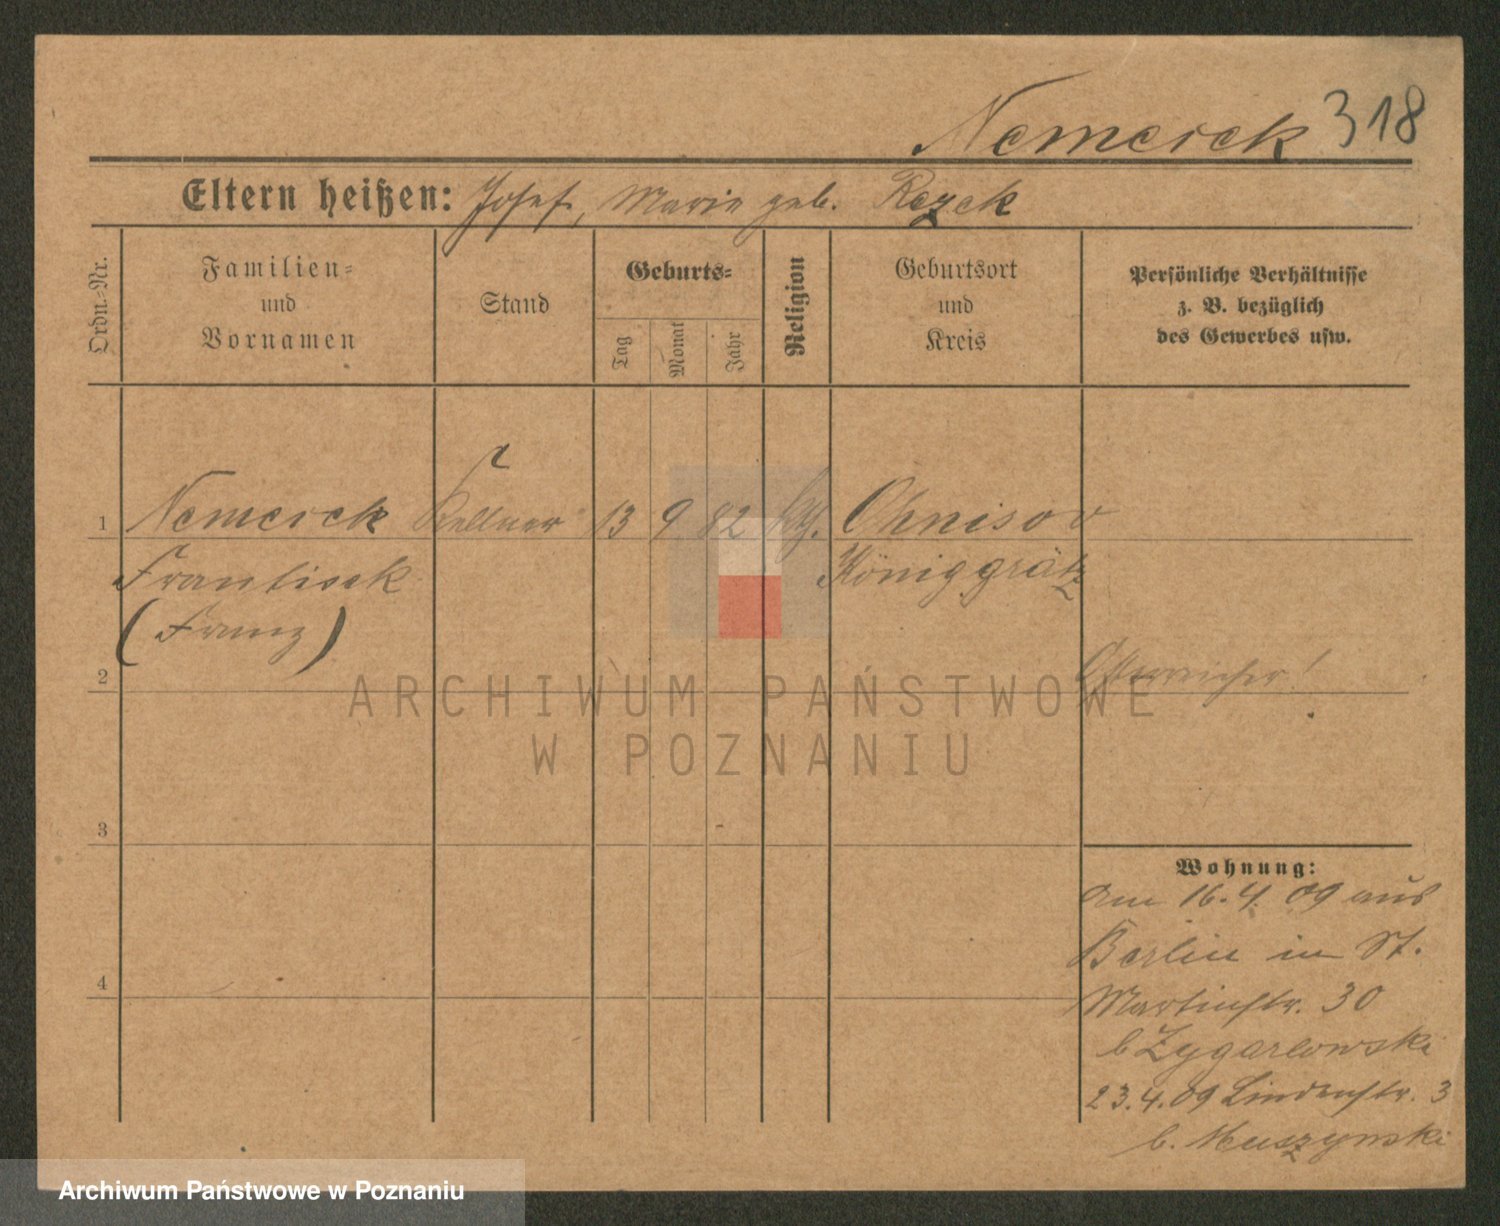 Nemecek 318
Eltern heißen: Josef, Marie geb. Rezek
Ordn.-Nr.
Familien-
und
Vornamen
Stand
Geburts-
Tag
Monat
Jahr
Religion
Geburtsort
und
Kreis
Persönliche Verhältnisse
z. B. bezüglich
des Gewerbes usw.
1 Nemecek Kellner 13 9 82 kth. Ohnisov
Frantisek Königgrätz
(Franz)
2 Österreicher!
ARCHIWUM PAŃSTWOWE
W POZNANIU
3
Wohnung:
am 16.4.09 aus
Berlin in St.
4
Martinstr. 30
b Zygarlowski
23.4.09 Lindenstr. 3
b. Muszynski
Archiwum Państwowe w Poznaniu